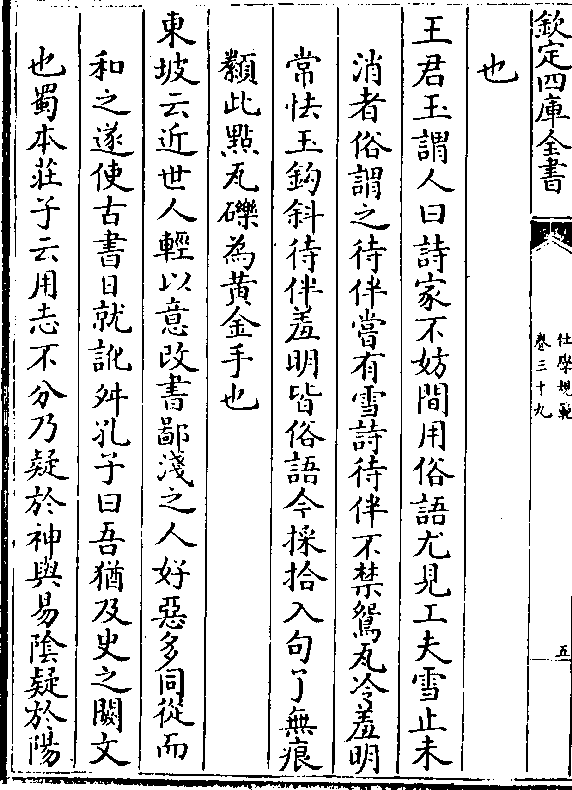 欽定四庫全書
仕學規範
卷三十九
五
也
王君玉謂人曰詩家不妨間用俗語尤見工夫雪止未
消者俗謂之待伴嘗有雪詩待伴不禁鴛瓦冷羞明
常怯玉鈎斜待伴羞明皆俗語今採拾入句了無痕
纇此點瓦礫為黃金手也
東坡云近世人輕以意改書鄙淺之人好惡多同從而
和之遂使古書日就訛舛孔子曰吾猶及史之闕文
也蜀本莊子云用志不分乃疑於神與易陰疑於陽